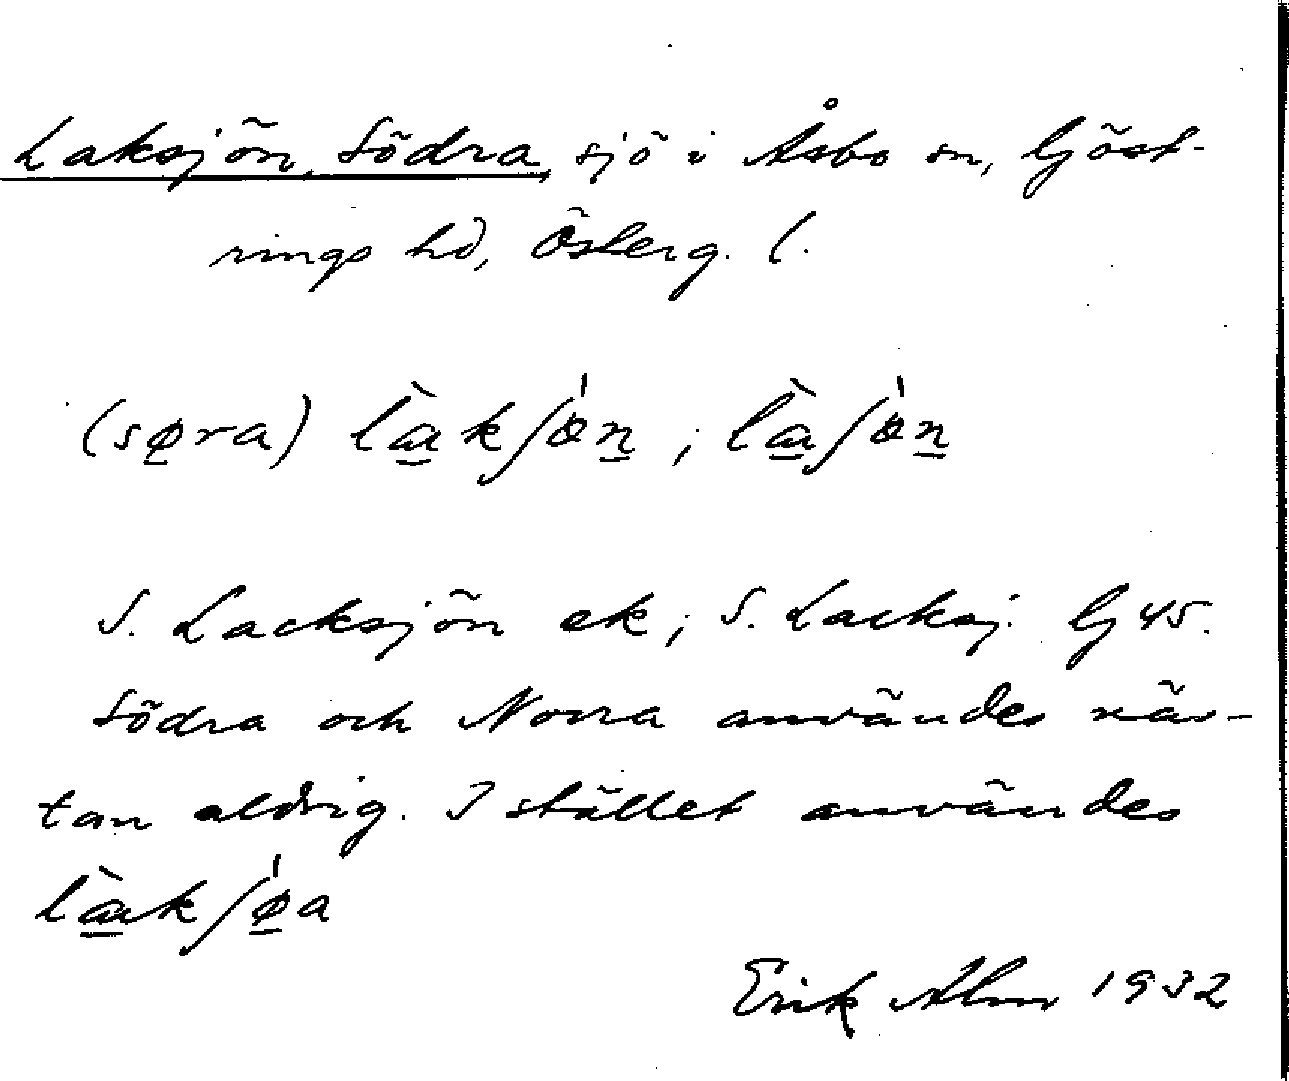 Laksjön, Södra, sjö i Åsbo sn, Göst-
rings hd, Österg. l.
(søra) làkʃö̀n; làʃö̀n
S. Lacksjön ek; S. Lacksj. Gj 45.
Södra och Norra användes näs-
tan aldrig. I stället användes
làkʃøa
Erik Alm 1932